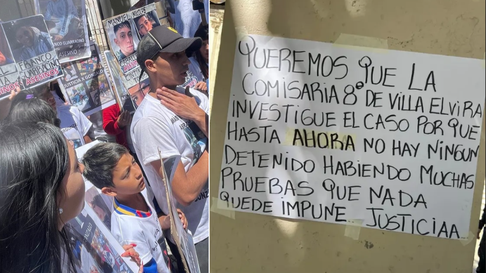 QUEREMOS QUE LA
COMISARIA 8º DE VILLA ELVIRA
INVESTIGUE EL CASO POR QUE
HASTA AHORA NO HAY NINGUN
DETENIDO HABIENDO MUCHAS
PRUEBAS QUE NADA
QUEDE IMPUNE JUSTICIAA